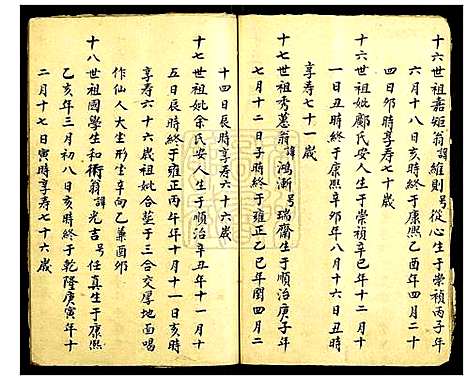 十六世祖嘉矩翁諱維則号從心生于崇禎丙子年
六月十八日亥時終于康熙乙酉年四月二十
四日卯時享寿七十歲
十六世祖妣鄺氏安人生于崇禎辛巳年十二月十
一日丑時終于康熙辛卯年八月十六日丑時
享寿七十一歲
十七世祖秀蒽翁諱鴻漸号瑞齋生于順治庚子年
七月十二日子時終于雍正乙巳年閏四月二
十四日辰時享寿六十六歲
十七世祖妣余氏安人生于順治辛丑年十一月十
五日辰時終于雍正丙午年十月十一日亥時
享寿六十六歲祖妣合塟于三合交犀地面唱
作仙人大坐形坐辛向乙兼酉卯
十八世祖國學生和衛翁諱光吉号任真生于康熙
乙亥年三月初八日亥時終于乾隆庚寅年十
二月十七日寅時享寿七十六歲